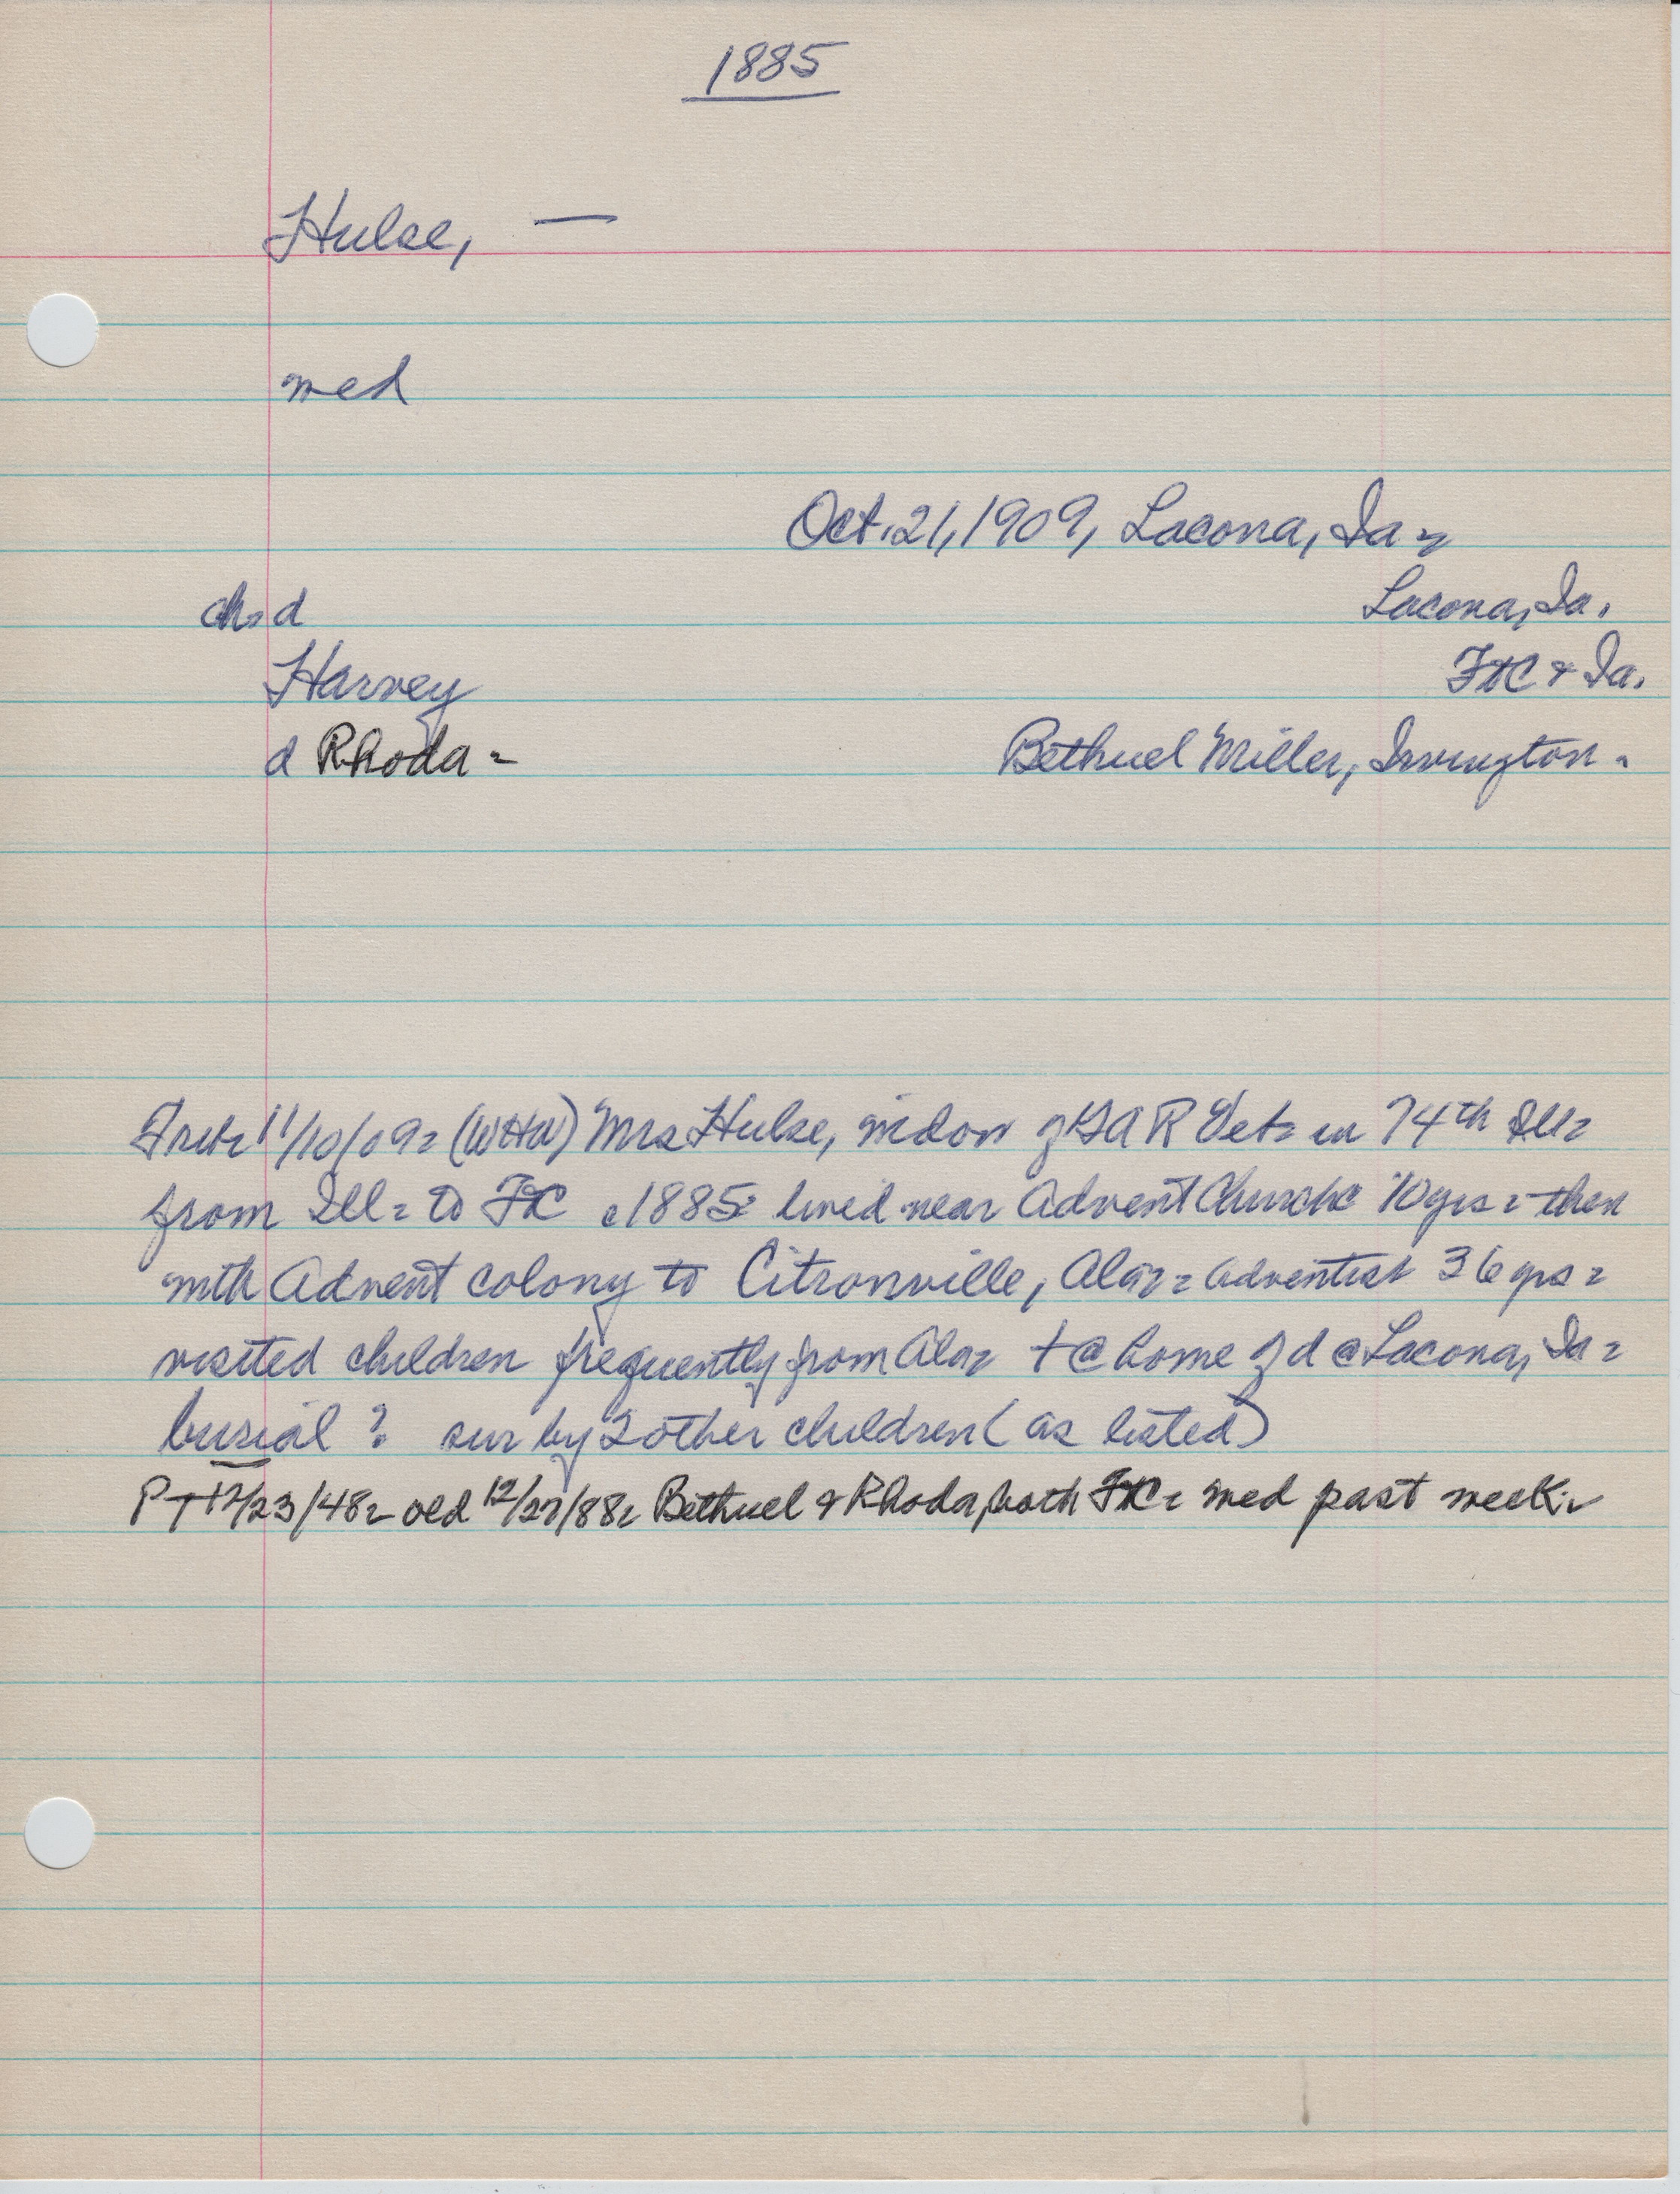 1885
Hulse, —
med
Oct. 21, 1909, Lacona, Ia -
ch. d Lacona, Ia.
Harvey FtC & Ia.
d Rhoda - Bethuel Miller, Irvington -
11/10/09 - (WHW) Mrs Hulse, widow of GAR Vet - in 74th Ill -
from Ill - to FtC c1885 - lived near Advent Church 10 yrs - then
with Advent colony to Citronville, Ala - - Adventist 36 yrs -
visited children frequently from Ala - † @ home of d @ Lacona, Ia -
burial ? sur by 2 other children (as listed)
PT 12/23/48 - old 12/27/88 - Bethuel & Rhoda, both FtC - med past week -